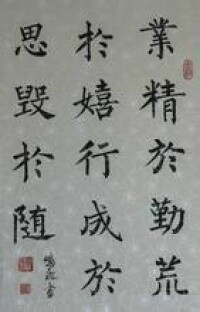 業精於勤荒
於嬉行成於
思毀於隨